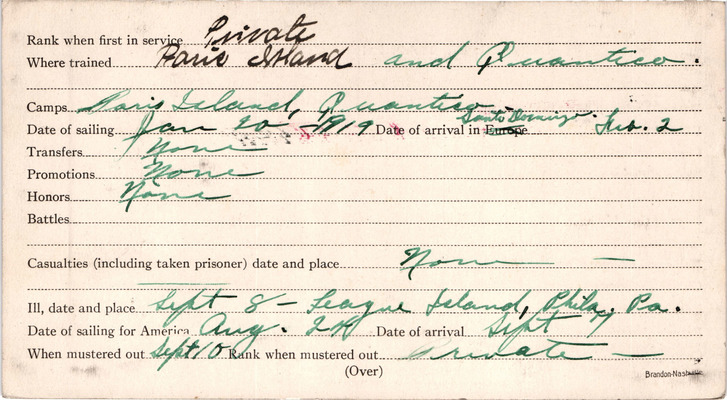 Rank when first in service Private
Where trained Paris Island and Quantico.
Camps Paris Island, Quantico
Date of sailing Jan 20 - 1919 Date of arrival in Europe Santo Domingo. Feb. 2
Transfers None
Promotions None
Honors None
Battles
Casualties (including taken prisoner) date and place None
Ill, date and place Sept 8 - League Island, Phila, Pa.
Date of sailing for America Aug. 24 Date of arrival Sept 7
When mustered out Sept 10 Rank when mustered out Private
(Over)
Brandon-Nashville